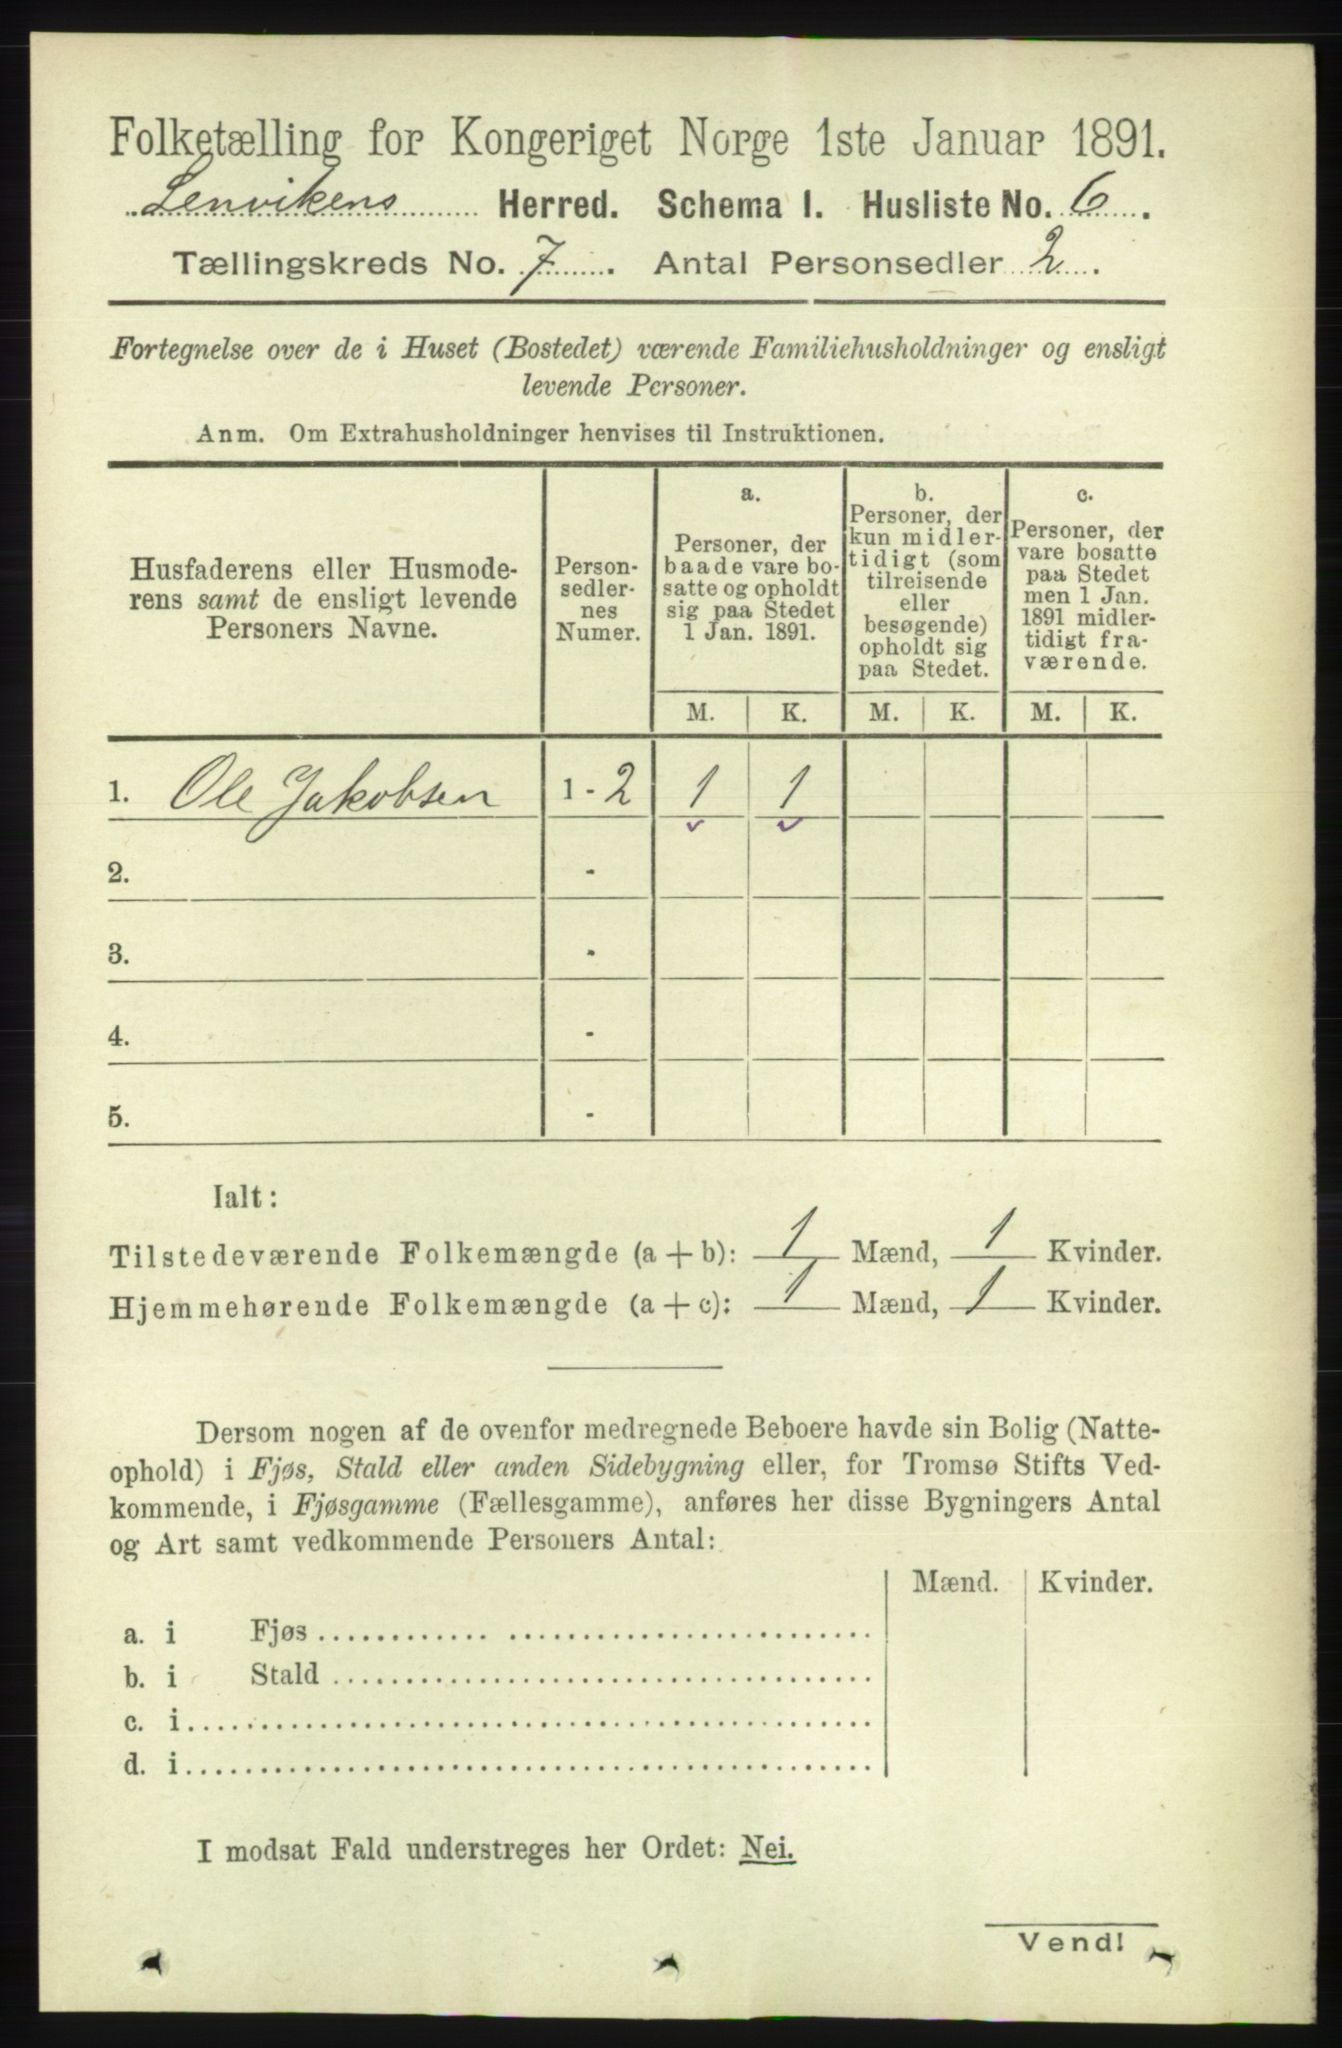 Folketælling for Kongeriget Norge 1ste Januar 1891.
Lenvikens Herred. Schema I. Husliste No. 6.
Tællingskreds No. 7. Antal Personsedler 2.
Fortegnelse over de i Huset (Bostedet) værende Familiehusholdninger og ensligt
levende Personer.
Anm. Om Extrahusholdninger henvises til Instruktionen.
Husfaderens eller Husmode-
rens samt de ensligt levende
Personers Navne.
Person-
sedler-
nes
Numer.
a.
Personer, der
baade vare bo-
satte og opholdt
sig paa Stedet
1 Jan. 1891.
b.
Personer, der
kun midler-
tidigt (som
tilreisende
eller
besøgende)
opholdt sig
paa Stedet.
c.
Personer, der
vare bosatte
paa Stedet
men 1 Jan.
1891 midler-
tidigt fra-
værende.
M. K. M. K. M. K.
1. Ole Jakobsen 1 - 2 1 1
2. -
3. -
4. -
5. -
Ialt:
Tilstedeværende Folkemængde (a + b): 1 Mænd, 1 Kvinder.
Hjemmehørende Folkemængde (a + c): 1 Mænd, 1 Kvinder.
Dersom nogen af de ovenfor medregnede Beboere havde sin Bolig (Natte-
ophold) i Fjøs, Stald eller anden Sidebygning eller, for Tromsø Stifts Ved-
kommende, i Fjøsgamme (Fællesgamme), anføres her disse Bygningers Antal
og Art samt vedkommende Personers Antal:
Mænd. Kvinder.
a. i Fjøs
b. i Stald
c. i
d. i
I modsat Fald understreges her Ordet: Nei.
Vend!